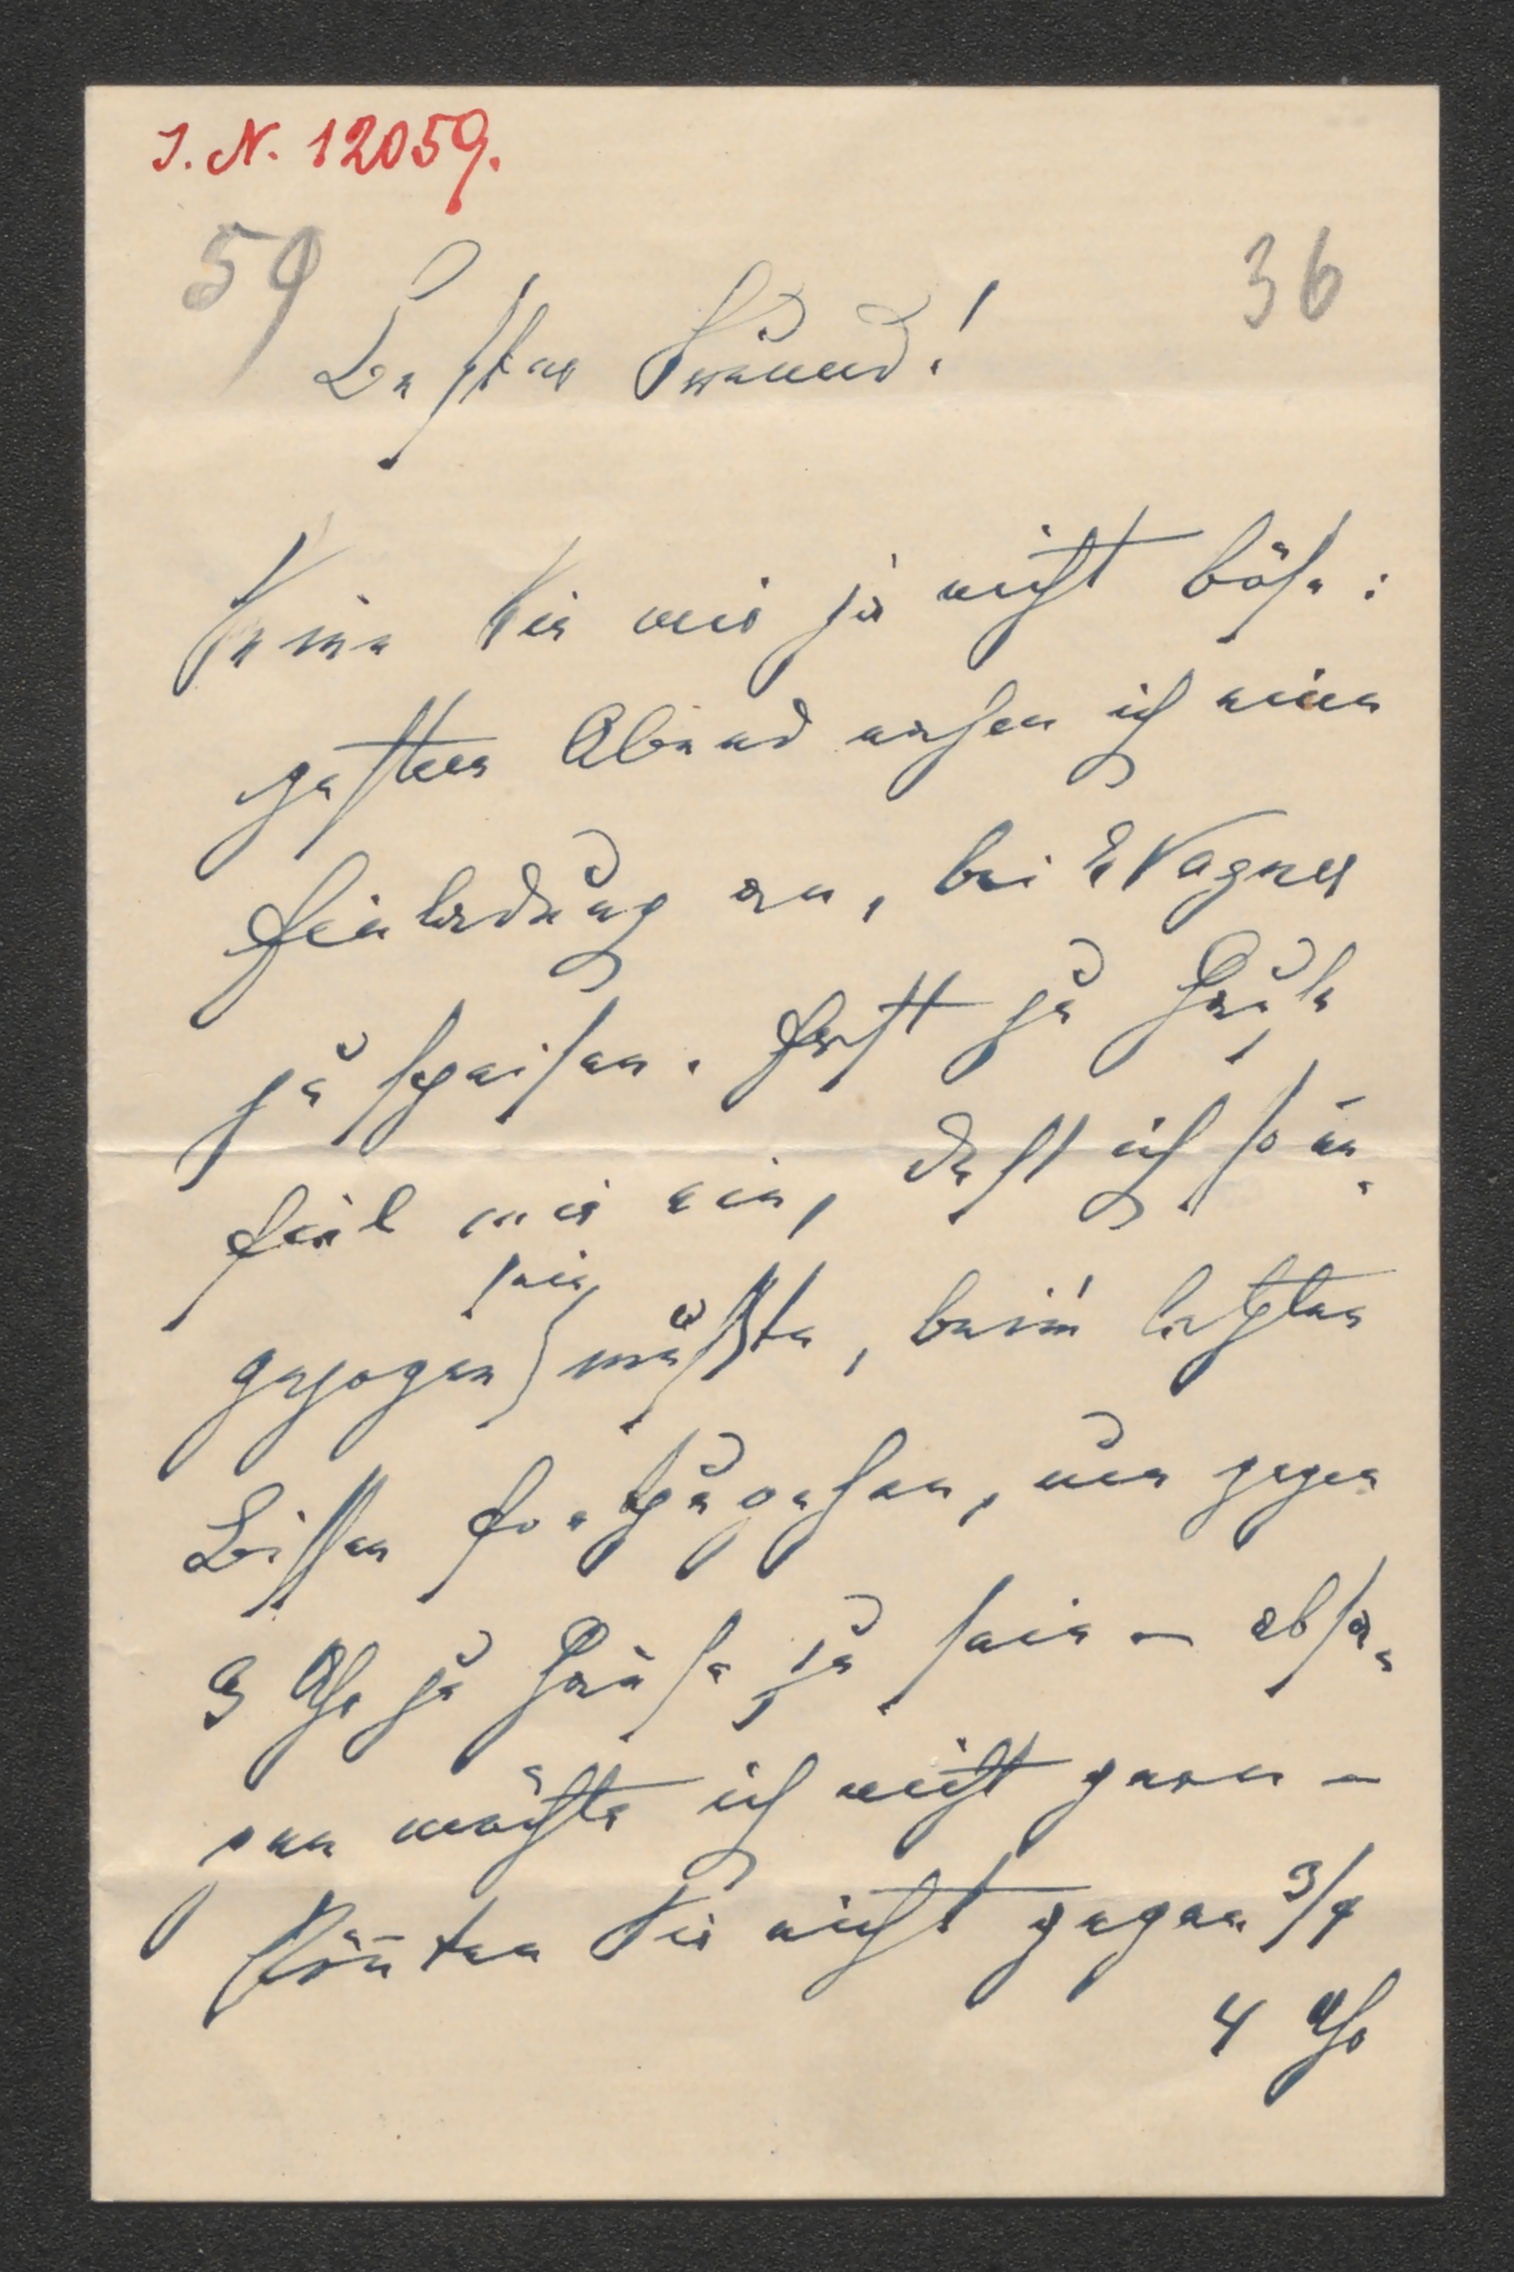 I. N. 12059.
59
36
Bester Freund!
Seien Sie mir ja nicht böse:
gestern Abend nahm ich eine
Einladung an, bei Wagner
zu speisen. Erst zu Hause
fiel mir ein, daß ich so un-
sein
gezogen müßte, beim letzten
Bissen fortzugehen, um gegen
3 Uhr zu Hause zu sein – absa-
gen möchte ich nicht gern –
Könnten Sie nicht gegen 3/4
4 Uhr